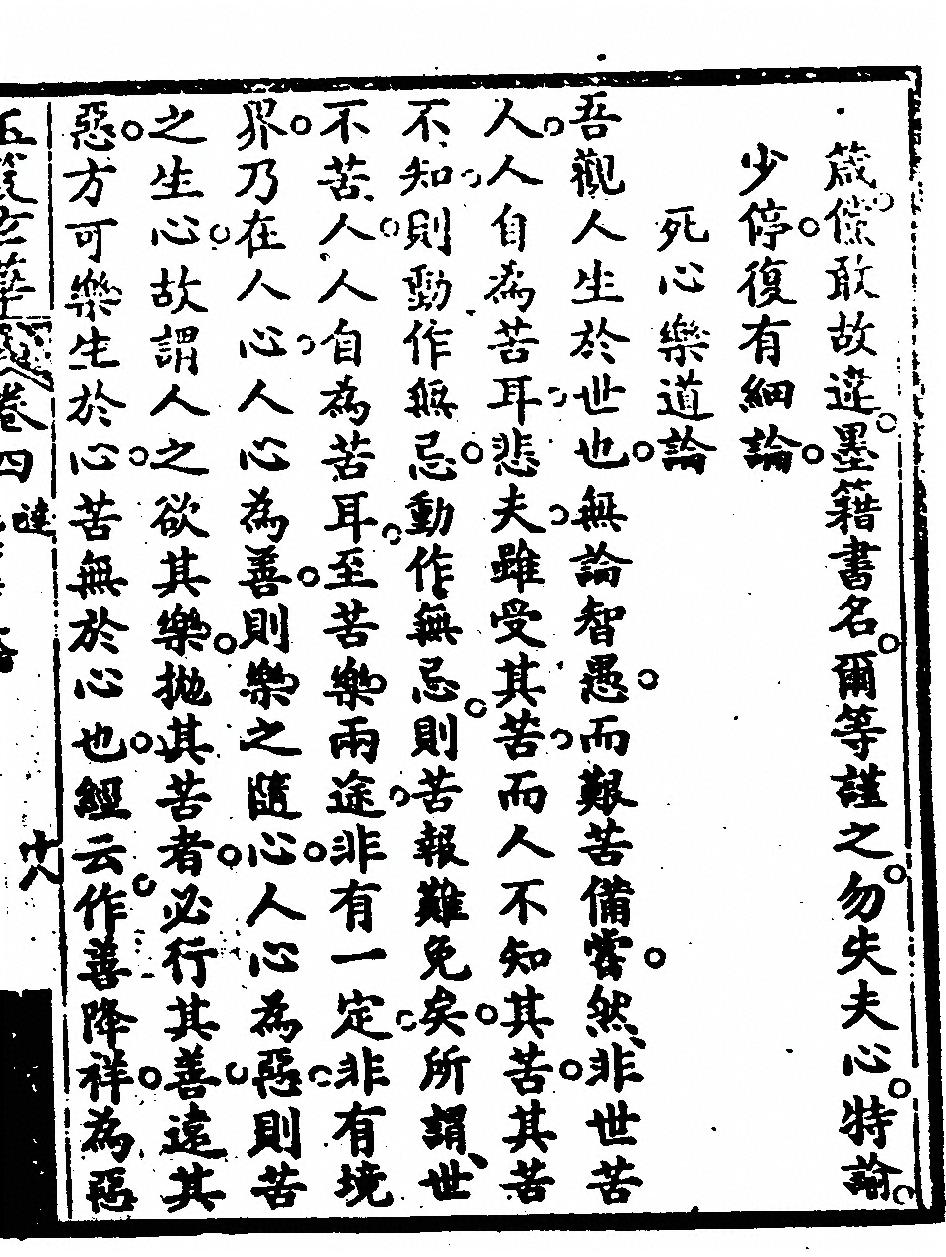 箴儻敢故違墨籍書名爾等謹之勿失夫心特諭
少停復有細論
死心樂道論
吾觀人生於世也無論智愚而艱苦備嘗然非世苦
人人自為苦耳悲夫雖受其苦而人不知其苦其苦
不知則動作無忌動作無忌則苦報難免矣所謂世
不苦人人自為苦耳至苦樂兩途非有一定非有境
界乃在人心人心為善則樂之隨心人心為惡則苦
之生心故謂人之欲其樂拋其苦者必行其善遠其
惡方可樂生於心苦無於心也經云作善降祥為惡
卷四
十八